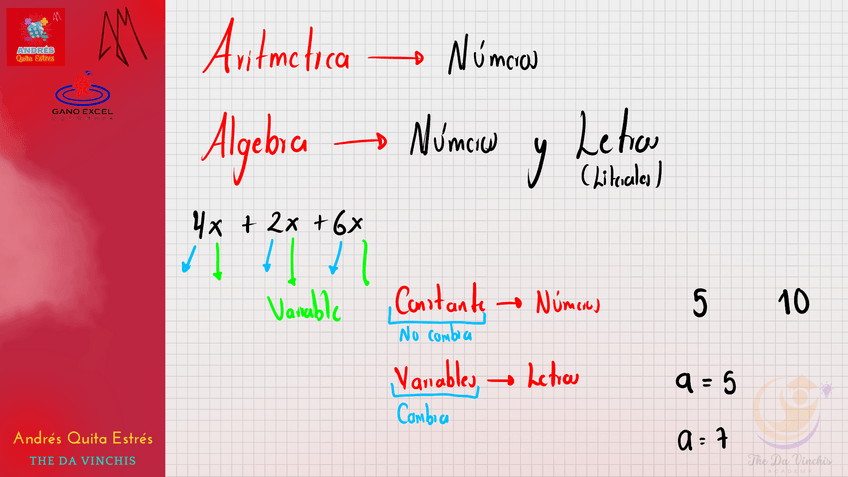 ANDRÉS
Quita Estrés
AM
GANO EXCEL
Aritmetica → Números
Algebra → Números y Letras
(Literales)
4x + 2x + 6x
Variable
Constante → Números
5 10
No cambia
Variables → Letras
a = 5
Cambia
a = 7
Andrés Quita Estrés
THE DA VINCHIS
The Da Vinchis
ACADEMY